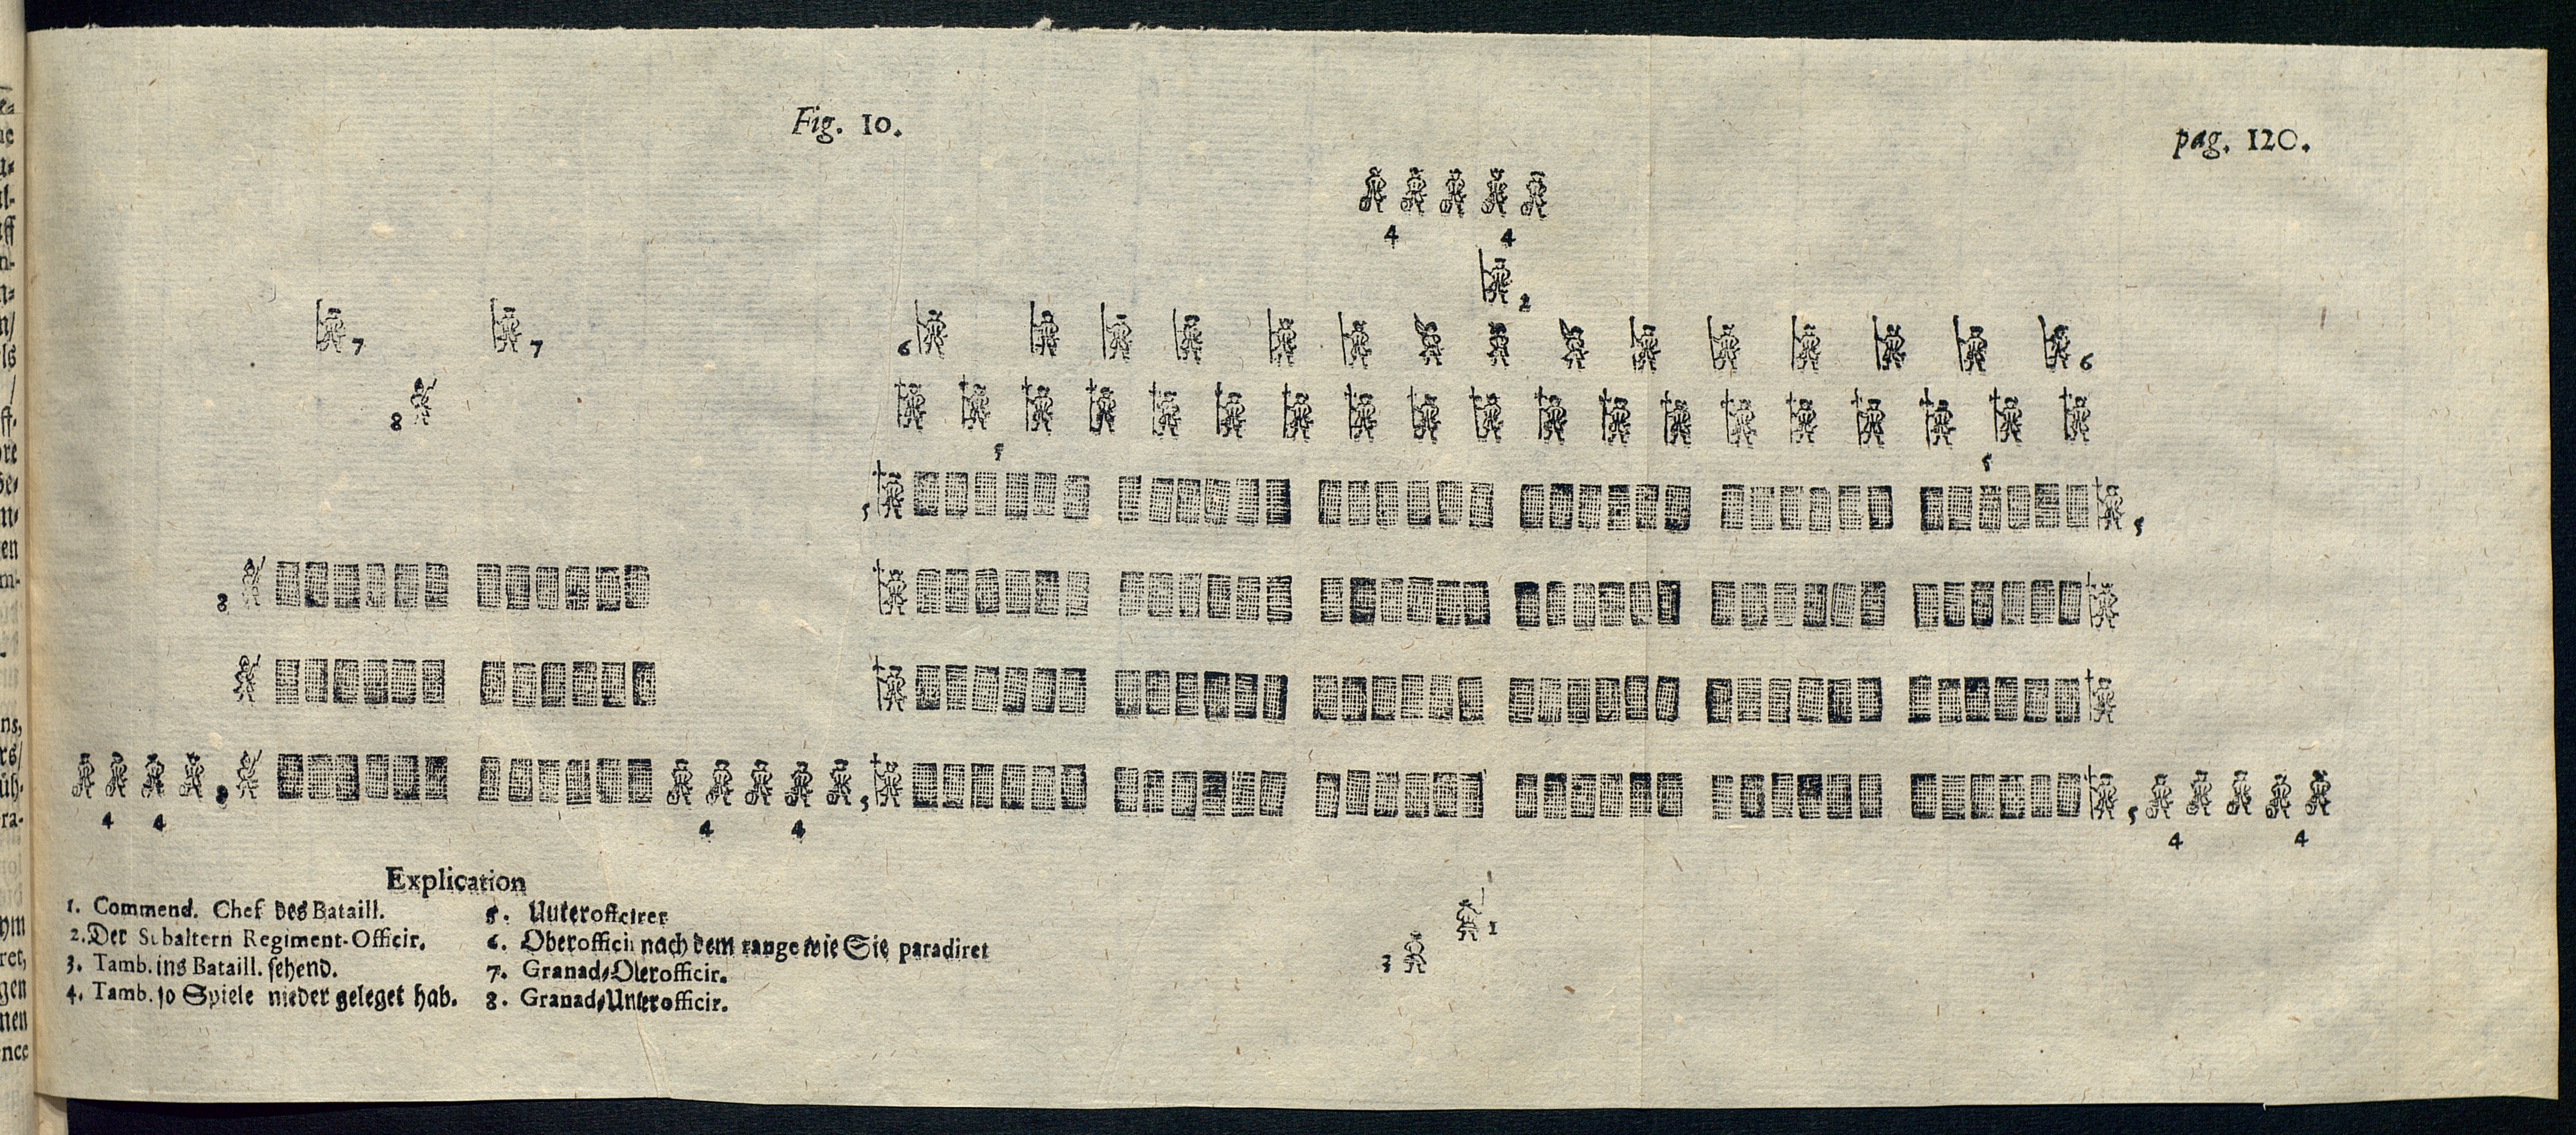 Fig. 10.
pag. 120.
4 4
2
7 7
6 6
8
5 5
5 5
8
8 5 5
4 4 4 4 4 4
Explication
1. Commend. Chef des Bataill.
2. Der Subaltern Regiment-Officir.
3. Tamb. ins Bataill. sehend.
4. Tamb. so Spiele nieder geleget hab.
5. Uuterofficirer
6. Oberofficir nach dem range wie Sie paradiret
7. Granad-Oberofficir.
8. Granad-Unterofficir.
1
3